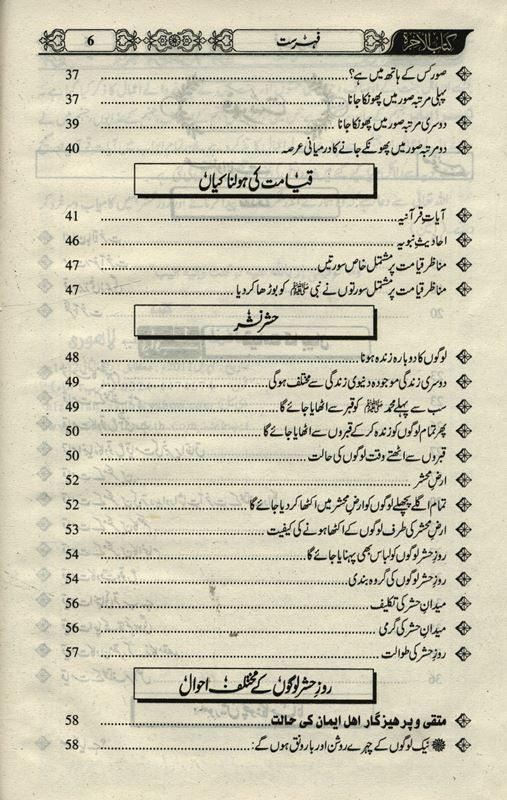 کتاب الآخرۃ فہرست 6
صور کس کے ہاتھ میں ہے؟ 37
پہلی مرتبہ صور میں پھونکا جانا 37
دوسری مرتبہ صور میں پھونکا جانا 39
دو مرتبہ صور میں پھونکے جانے کا درمیانی عرصہ 40
قیامت کی ہولناکیاں
آیات قرآنیہ 41
احادیث نبویہ 46
مناظر قیامت پر مشتمل خاص سورتیں 47
مناظر قیامت پر مشتمل سورتوں نے نبی ﷺ کو بوڑھا کر دیا 47
حشر نشر
لوگوں کا دوبارہ زندہ ہونا 48
دوسری زندگی موجودہ دنیوی زندگی سے مختلف ہوگی 49
سب سے پہلے محمد ﷺ کو قبر سے اٹھایا جائے گا 49
پھر تمام لوگوں کو زندہ کر کے قبروں سے اٹھایا جائے گا 50
قبروں سے اٹھتے وقت لوگوں کی حالت 50
ارض محشر 52
تمام اگلے پچھلے لوگوں کو ارض محشر میں اکٹھا کر دیا جائے گا 52
ارض محشر کی طرف لوگوں کے اکٹھا ہونے کی کیفیت 53
روز حشر لوگوں کو لباس بھی پہنایا جائے گا 54
روز حشر لوگوں کی گروہ بندی 54
میدان حشر کی تکلیف 56
میدان حشر کی گرمی 56
روز حشر کی طوالت 57
روز حشر لوگوں کے مختلف احوال
متقی و پرہیزگار اہل ایمان کی حالت 58
نیک لوگوں کے چہرے روشن اور بارونق ہوں گے: 58